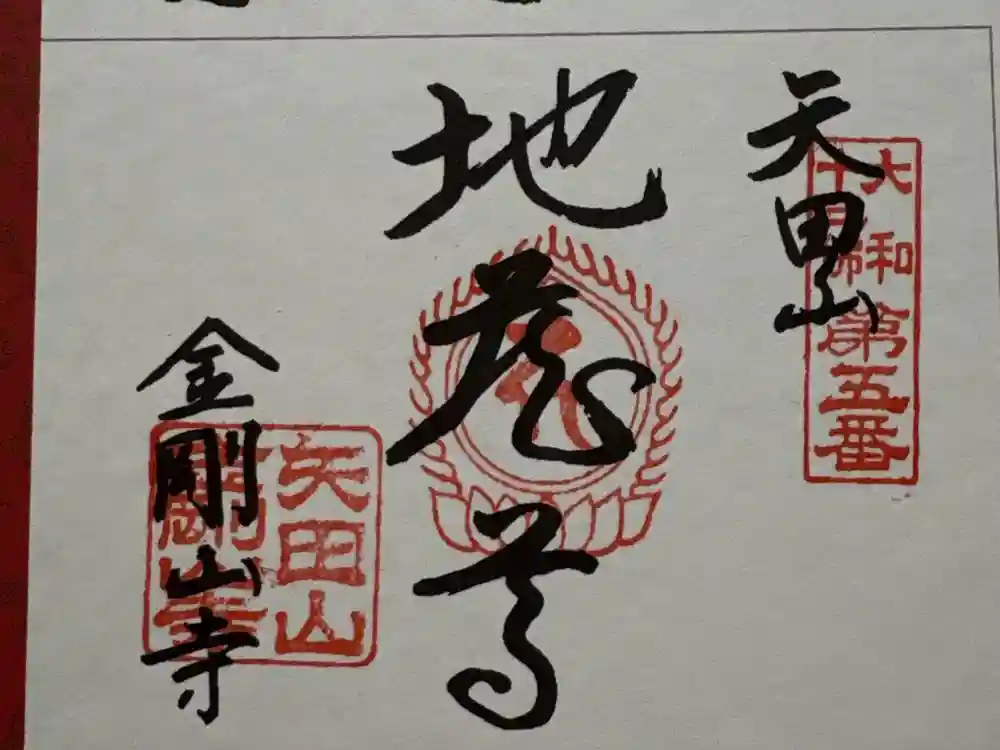 矢田山
大和
十三佛
第五番
地蔵尊
金剛山寺
矢田山
金剛山寺